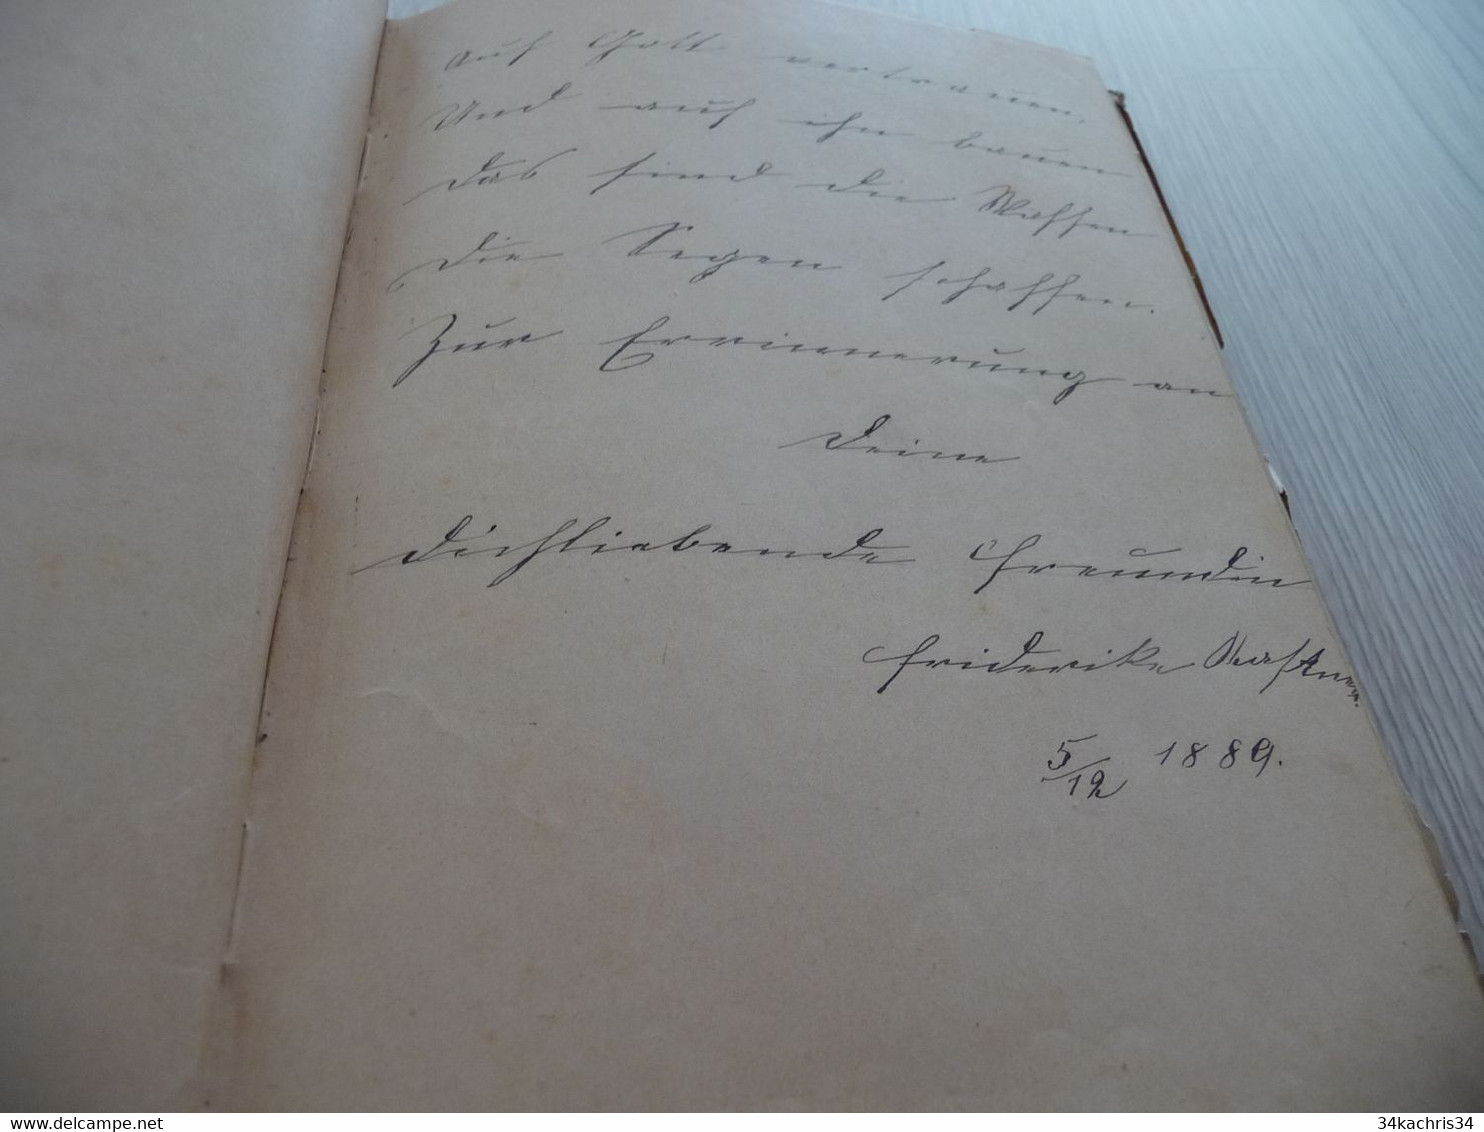 Auf Gott vertrauen,
Und auf ihn bauen
das sind die Waffen
die Segen schaffen.
Zur Errinnerung an
Deine
dichliebende Freundin
Friderike
5/12 1889.
delcampe.net
34kachris34